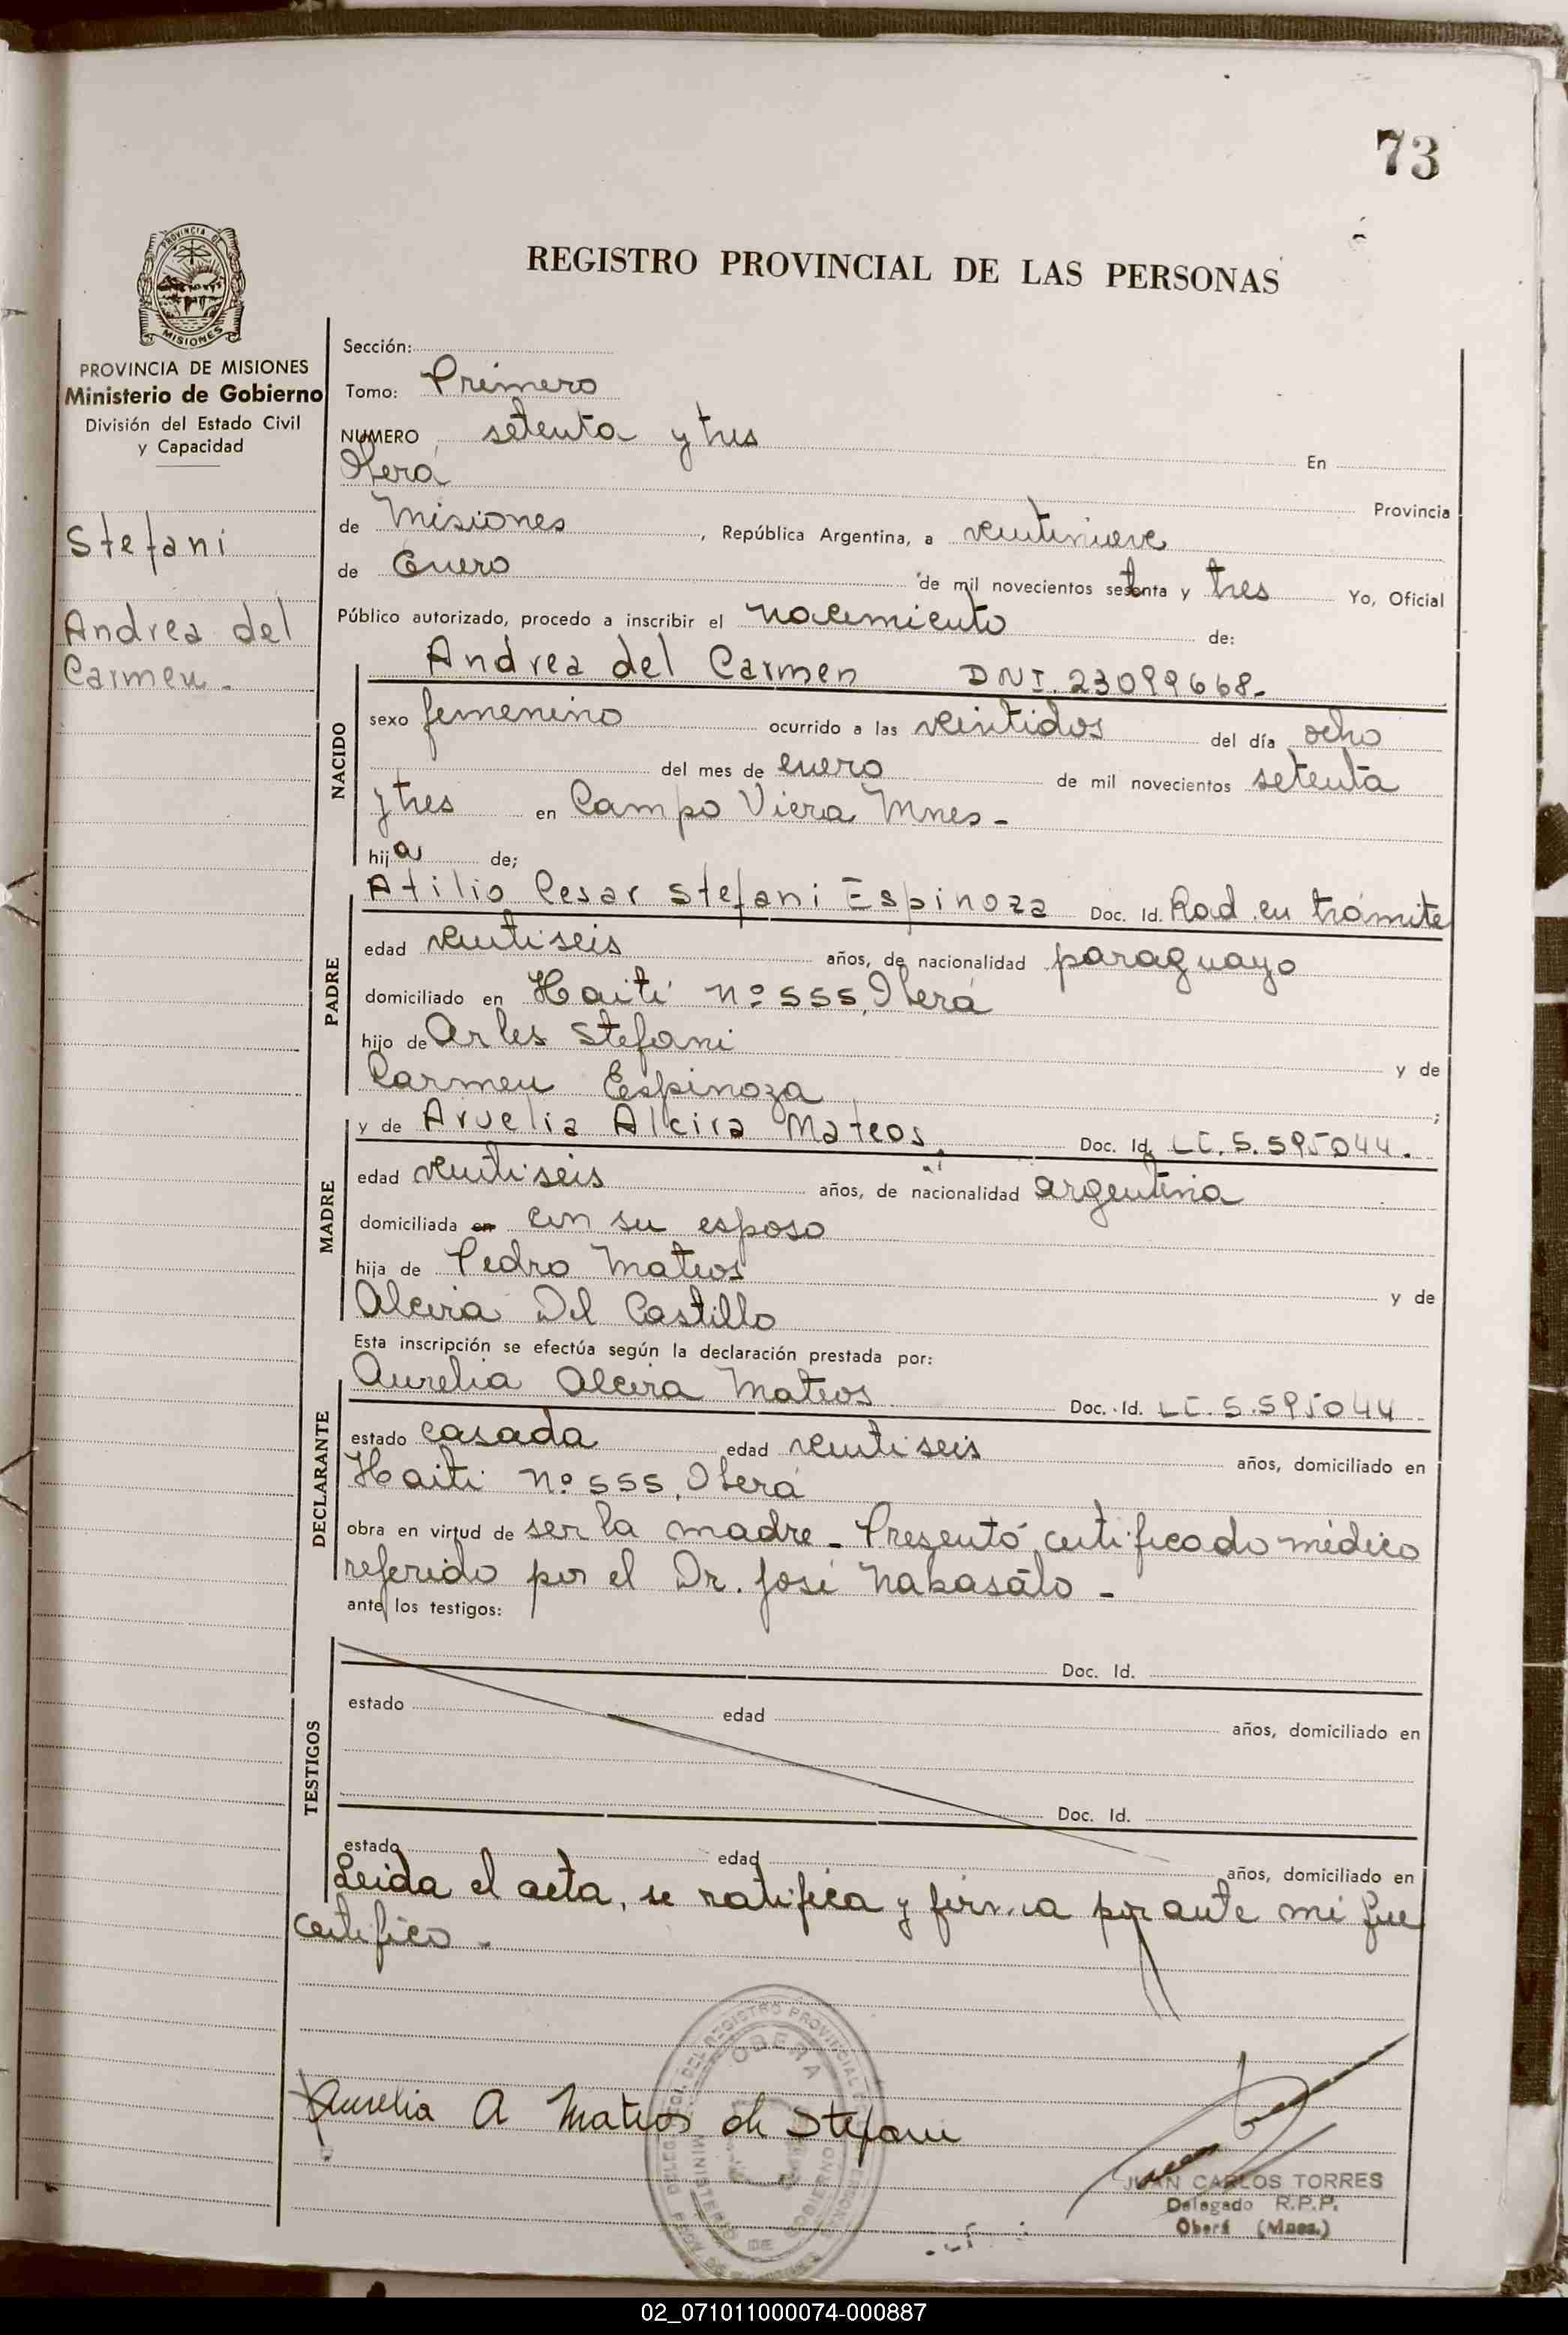 73
PROVINCIA DE
MISIONES
REGISTRO PROVINCIAL DE LAS PERSONAS
PROVINCIA DE MISIONES
Ministerio de Gobierno
División del Estado Civil
y Capacidad
Stefani
Andrea del
Carmen.-
Sección:
Tomo: Primero
NUMERO setenta y tres En
Oberá Provincia
de Misiones, República Argentina, a veintinueve
de Enero de mil novecientos setenta y tres Yo, Oficial
Público autorizado, procedo a inscribir el nacimiento de:
Andrea del Carmen DNI. 23099668.-
NACIDO
sexo femenino ocurrido a las veintidos del día ocho
del mes de enero de mil novecientos setenta
y tres en Campo Viera Mnes-
hija de;
PADRE
Atilio Cesar Stefani Espinoza Doc. Id. Rad. en trámite
edad veintiseis años, de nacionalidad paraguayo
domiciliado en Haiti nº 555, Oberá
hijo de Arles Stefani y de
Carmen Espinoza;
MADRE
y de Aruelia Alcira Mateos, Doc. Id. LC. 5.595044.
edad veintiseis años, de nacionalidad argentina
domiciliada en con su esposo
hija de Pedro Mateos y de
Alcira Del Castillo
Esta inscripción se efectúa según la declaración prestada por:
DECLARANTE
Aurelia Alcira Mateos Doc. Id. LC. 5.595044
estado casada edad veintiseis años, domiciliado en
Haiti nº 555, Oberá
obra en virtud de ser la madre - Presentó certificado médico
referido por el Dr. José Nakasato -
ante los testigos:
TESTIGOS
Doc. Id.
estado edad años, domiciliado en
Doc. Id.
estado edad años, domiciliado en
Leida el acta, se ratifica y firma por ante mi que
certifico -
OBERA
Aurelia A Mateos de Stefani
JUAN CARLOS TORRES
Delegado R.P.P.
Oberá (Mnes.)
02_071011000074-000887